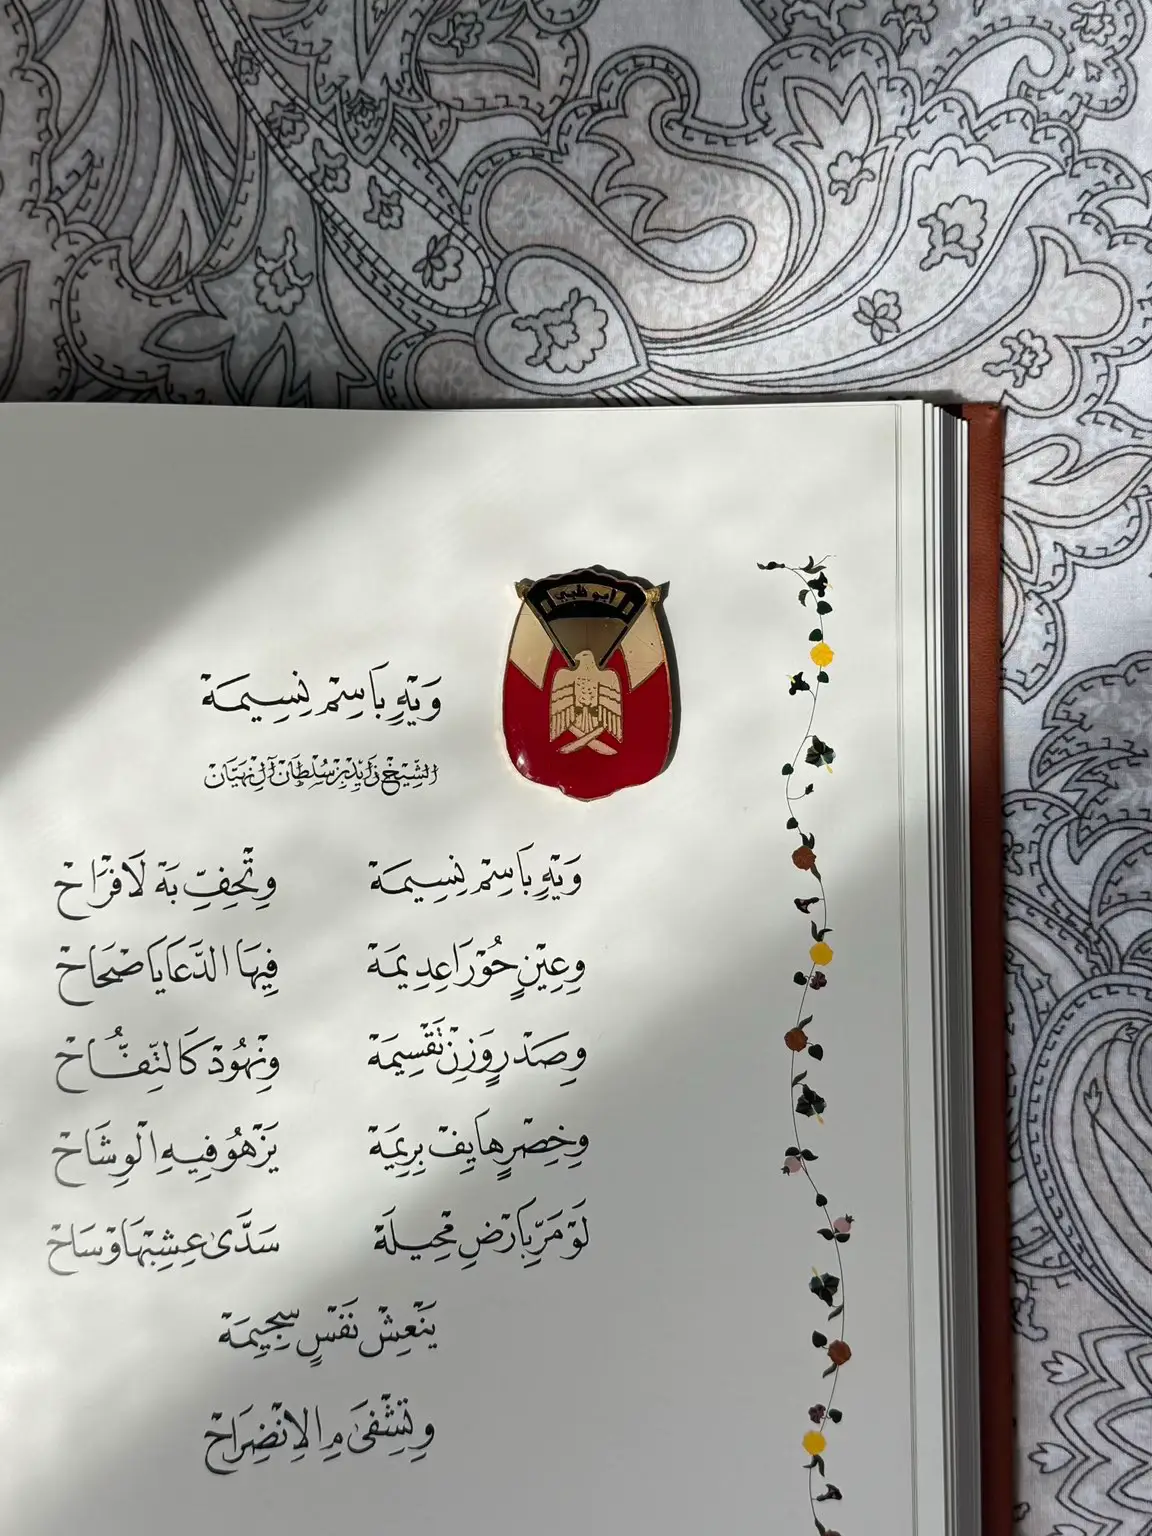 أبوظبي
وَيْهٍ بَاسِمْ نِسِيمَةْ
الشَّيْخ زَايْد بِنْ سُلْطَان آل نَهْيَان
وَيْهٍ بَاسِمْ نِسِيمَةْ وِتْحِفِّ بَهْ لَافْرَاحْ
وِعِيْنٍ حُوْرَا عِدِيمَةْ فِيهَا الدَّعَايَا صْحَاحْ
وِصَدْرٍ وَزِنْ تَقْسِيمَةْ وِنْهُوْدْ كَالتِّفَّاحْ
وِخِصْرٍ هَايِفْ بِرِيمَةْ يَزْهُو فِيهِ الْوِشَاحْ
لَوْ مَرِّ بَارْضٍ مْحِيلَةْ سَدَّىٰ عِشِبْهَا وْسَاحْ
يَنْعِشْ نَفْسٍ سِجِيمَةْ
وِتِشْفَىٰ مِ الِانْضِرَاحْ